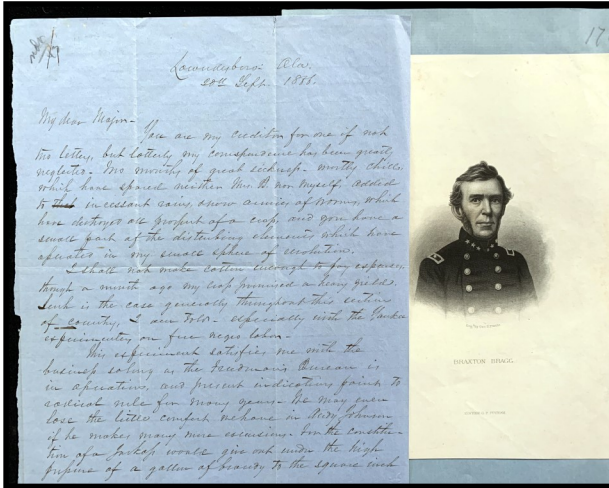 17
Lowndesboro' Ala.
20th Sept. 1866.
My dear Major-
You are my creditor for one if not
two letters, but latterly my correspondence has been greatly
neglected. Two months of great sickness - mostly chills
which have spared neither Mrs. B. nor myself, added
to incessant rains, & now armies of worms, which
have destroyed all prospect of a crop, and you have a
small part of the disturbing elements which have
operated in my small sphere of revolution.
I shall not make cotton enough to pay expenses
though a month ago my crop promised a heavy yield.
Such is the case generally throughout this section
of country, I am told - especially with the Yankee
experimenters on free negro labor-
This experiment satisfies me with the
business so long as the Freedman's Bureau is
in operation, and present indications point to
radical rule for many years. We may even
lose the little comfort we have in Andy Johnson
if he makes many more excursions. For the constitu-
tion of a Jackass would give out under the high
pressure of a gallon of brandy to the square inch
BRAXTON BRAGG.